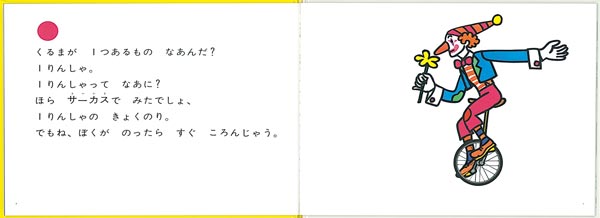 くるまが 1つあるもの なあんだ?
1りんしゃ。
1りんしゃって なあに?
ほら サーカスで みたでしょ、
1りんしゃの きょくのり。
でもね、ぼくが のったら すぐ ころんじゃう。